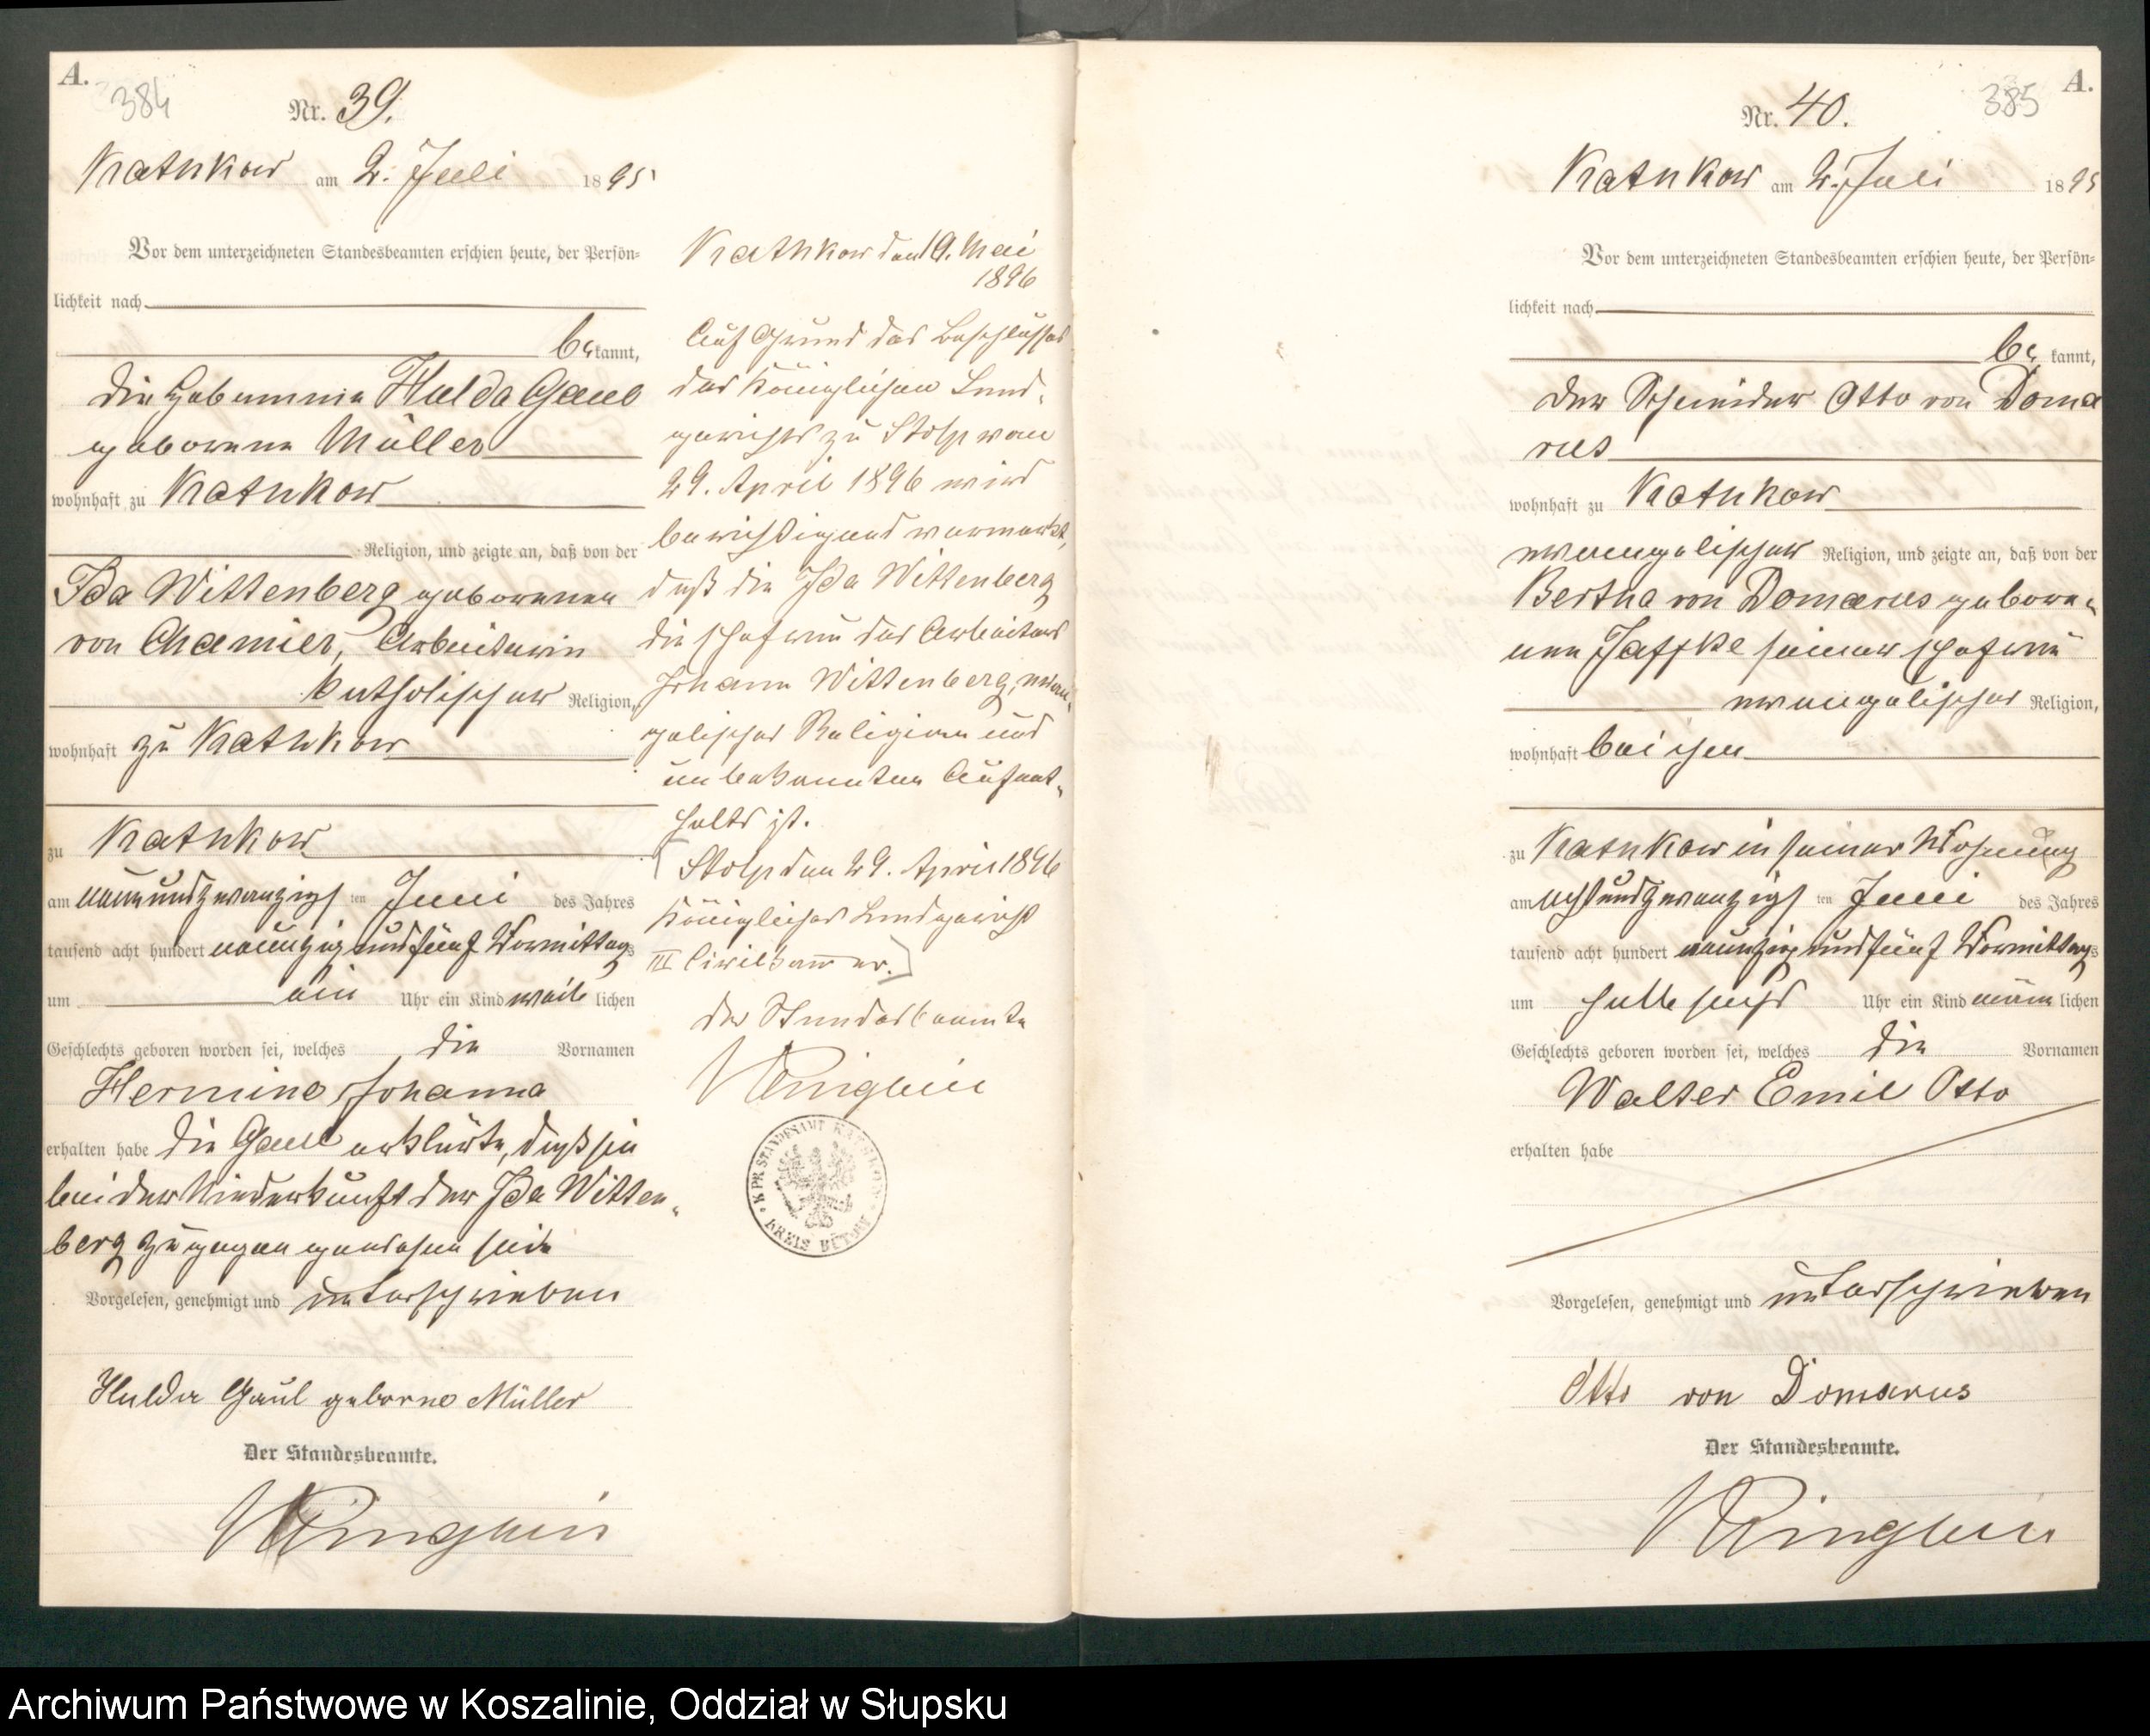 A.
384
Nr. 39.
Kathkow am 2. Juli 1895
Vor dem unterzeichneten Standesbeamten erschien heute, der Persön-
lichkeit nach
be kannt,
die Hebamme Hulda Gaul
geborene Müller
wohnhaft zu Kathkow
Religion, und zeigte an, daß von der
Ida Wittenberg geborenen
von Chamier, Arbeiterin
katholischer Religion,
wohnhaft zu Kathkow
zu Kathkow
am neunundzwanzigs ten Juni des Jahres
tausend acht hundert neunzig und fünf Vormittags
um ein Uhr ein Kind weib lichen
Geschlechts geboren worden sei, welches die Vornamen
Hermine Johanna
erhalten habe die Gaul erklärte, daß sie
bei der Niederkunft der Ida Witten-
berg zugegen gewesen sei
Vorgelesen, genehmigt und unterschrieben
Hulda Gaul geborne Müller
Der Standesbeamte.
Kathkow den 19. Mai
1896
Auf Grund des Beschlusses
des Königlichen Land-
gerichts zu Stolp vom
29. April 1896 wird
berichtigend vermerkt,
daß die Ida Wittenberg
die Ehefrau des Arbeiters
Johann Wittenberg, evan-
gelischer Religion und
unbekannten Aufent-
halts ist.
[Stolp den 29. April 1896
Königliches Landgericht
III Civilkammer.]
Der Standesbeamte
K PR. STANDESAMT KATHKOW
KREIS BÜTOW
A.
385
Nr. 40.
Kathkow am 2. Juli 1895
Vor dem unterzeichneten Standesbeamten erschien heute, der Persön-
lichkeit nach
be kannt,
der Schneider Otto von Doma
rus
wohnhaft zu Kathkow
evangelischer Religion, und zeigte an, daß von der
Bertha von Domarus gebore-
nen Jaffke seiner Ehefrau
evangelischer Religion,
wohnhaft bei ihm
zu Kathkow in seiner Wohnung
am achtundzwanzigs ten Juni des Jahres
tausend acht hundert neunzig und fünf Vormittags
um halb sechs Uhr ein Kind männ lichen
Geschlechts geboren worden sei, welches die Vornamen
Walter Emil Otto
erhalten habe
Vorgelesen, genehmigt und unterschrieben
Otto von Domarus
Der Standesbeamte.
Archiwum Państwowe w Koszalinie, Oddział w Słupsku